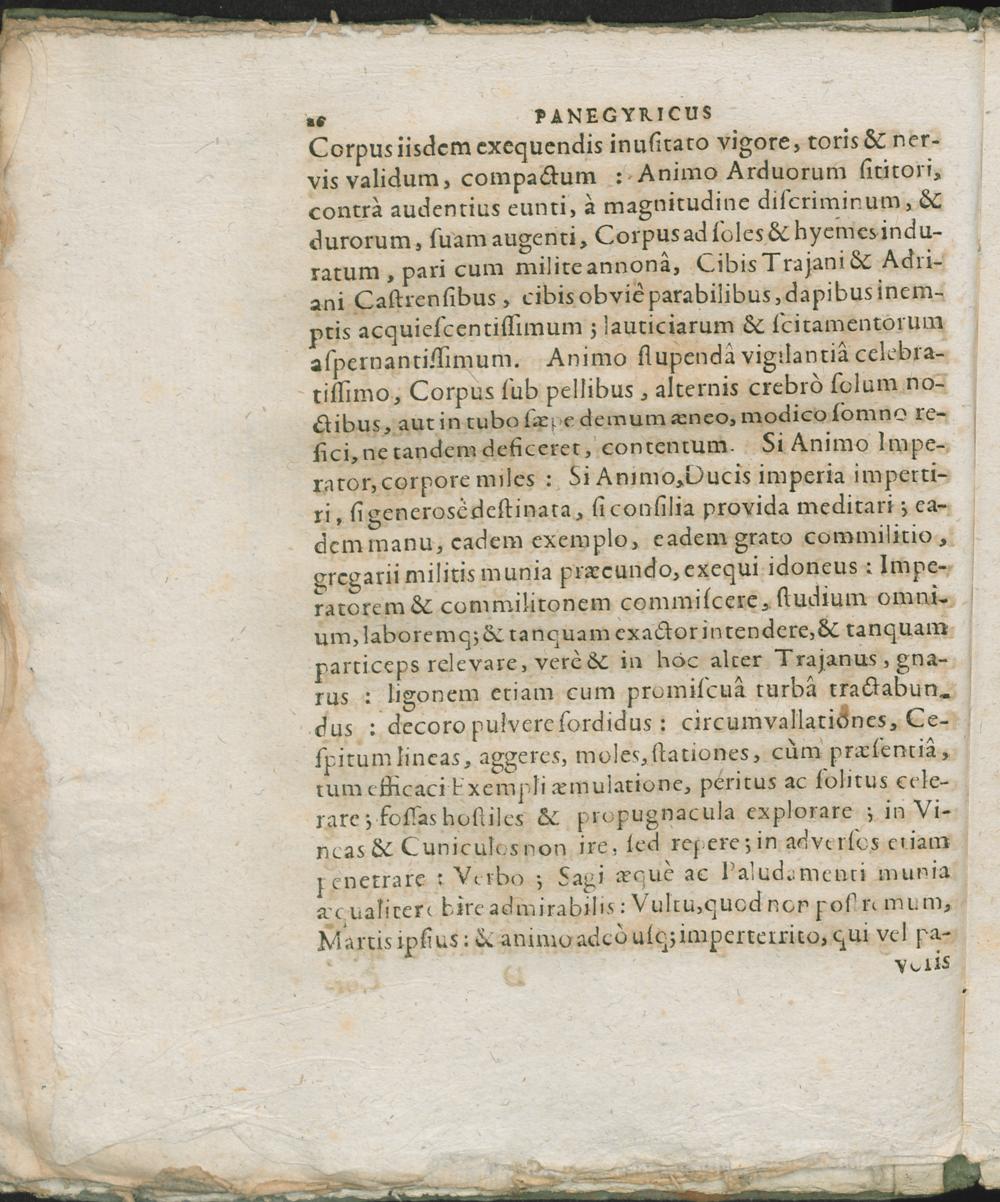 26 PANEGYRICUS
Corpus iisdem exequendis inuſitato vigore, toris & ner-
vis validum, compactum : Animo Arduorum ſititori,
contrà audentius eunti, à magnitudine diſcriminum, &
durorum, ſuam augenti, Corpus ad ſoles & hyemes indu-
ratum, pari cum milite annonâ, Cibis Trajani & Adri-
ani Caſtrenſibus, cibis obviè parabilibus, dapibus inem-
ptis acquieſcentiſſimum; lauticiarum & ſcitamentorum
aſpernantiſſimum. Animo ſtupendâ vigilantiâ celebra-
tiſſimo, Corpus ſub pellibus, alternis crebrò ſolum no-
ctibus, aut in tubo ſæpe demum æneo, modico ſomno re-
fici, ne tandem deficeret, contentum. Si Animo Impe-
rator, corpore miles : Si Animo, Ducis imperia imperti-
ri, ſi generosè deſtinata, ſi conſilia provida meditari; ea-
dem manu, eadem exemplo, eadem grato commilitio,
gregarii militis munia præeundo, exequi idoneus : Impe-
ratorem & commilitonem commiſcere, ſtudium omni-
um, laboremq; & tanquam exactor intendere, & tanquam
particeps relevare, verè & in hoc alter Trajanus, gna-
rus : ligonem etiam cum promiſcuâ turbâ tractabun-
dus : decoro pulvere ſordidus : circumvallationes, Ce-
ſpitum lineas, aggeres, moles, ſtationes, cùm præſentiâ,
tum efficaci Exempli æmulatione, peritus ac ſolitus cele-
rare; foſſas hoſtiles & propugnacula explorare ; in Vi-
neas & Cuniculos non ire, ſed repere; in adverſos etiam
penetrare : Verbo ; Sagi æquè ac Paludamenti munia
æqualiter obire admirabilis : Vultu, quod non poſtremum,
Martis ipſius : & animo adeò uſq; imperterrito, qui vel pa-
voris